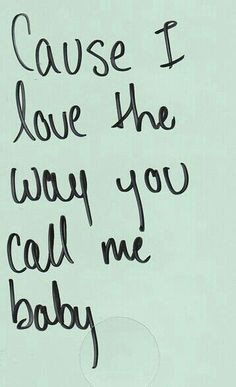 Cause I
love the
way you
call me
baby